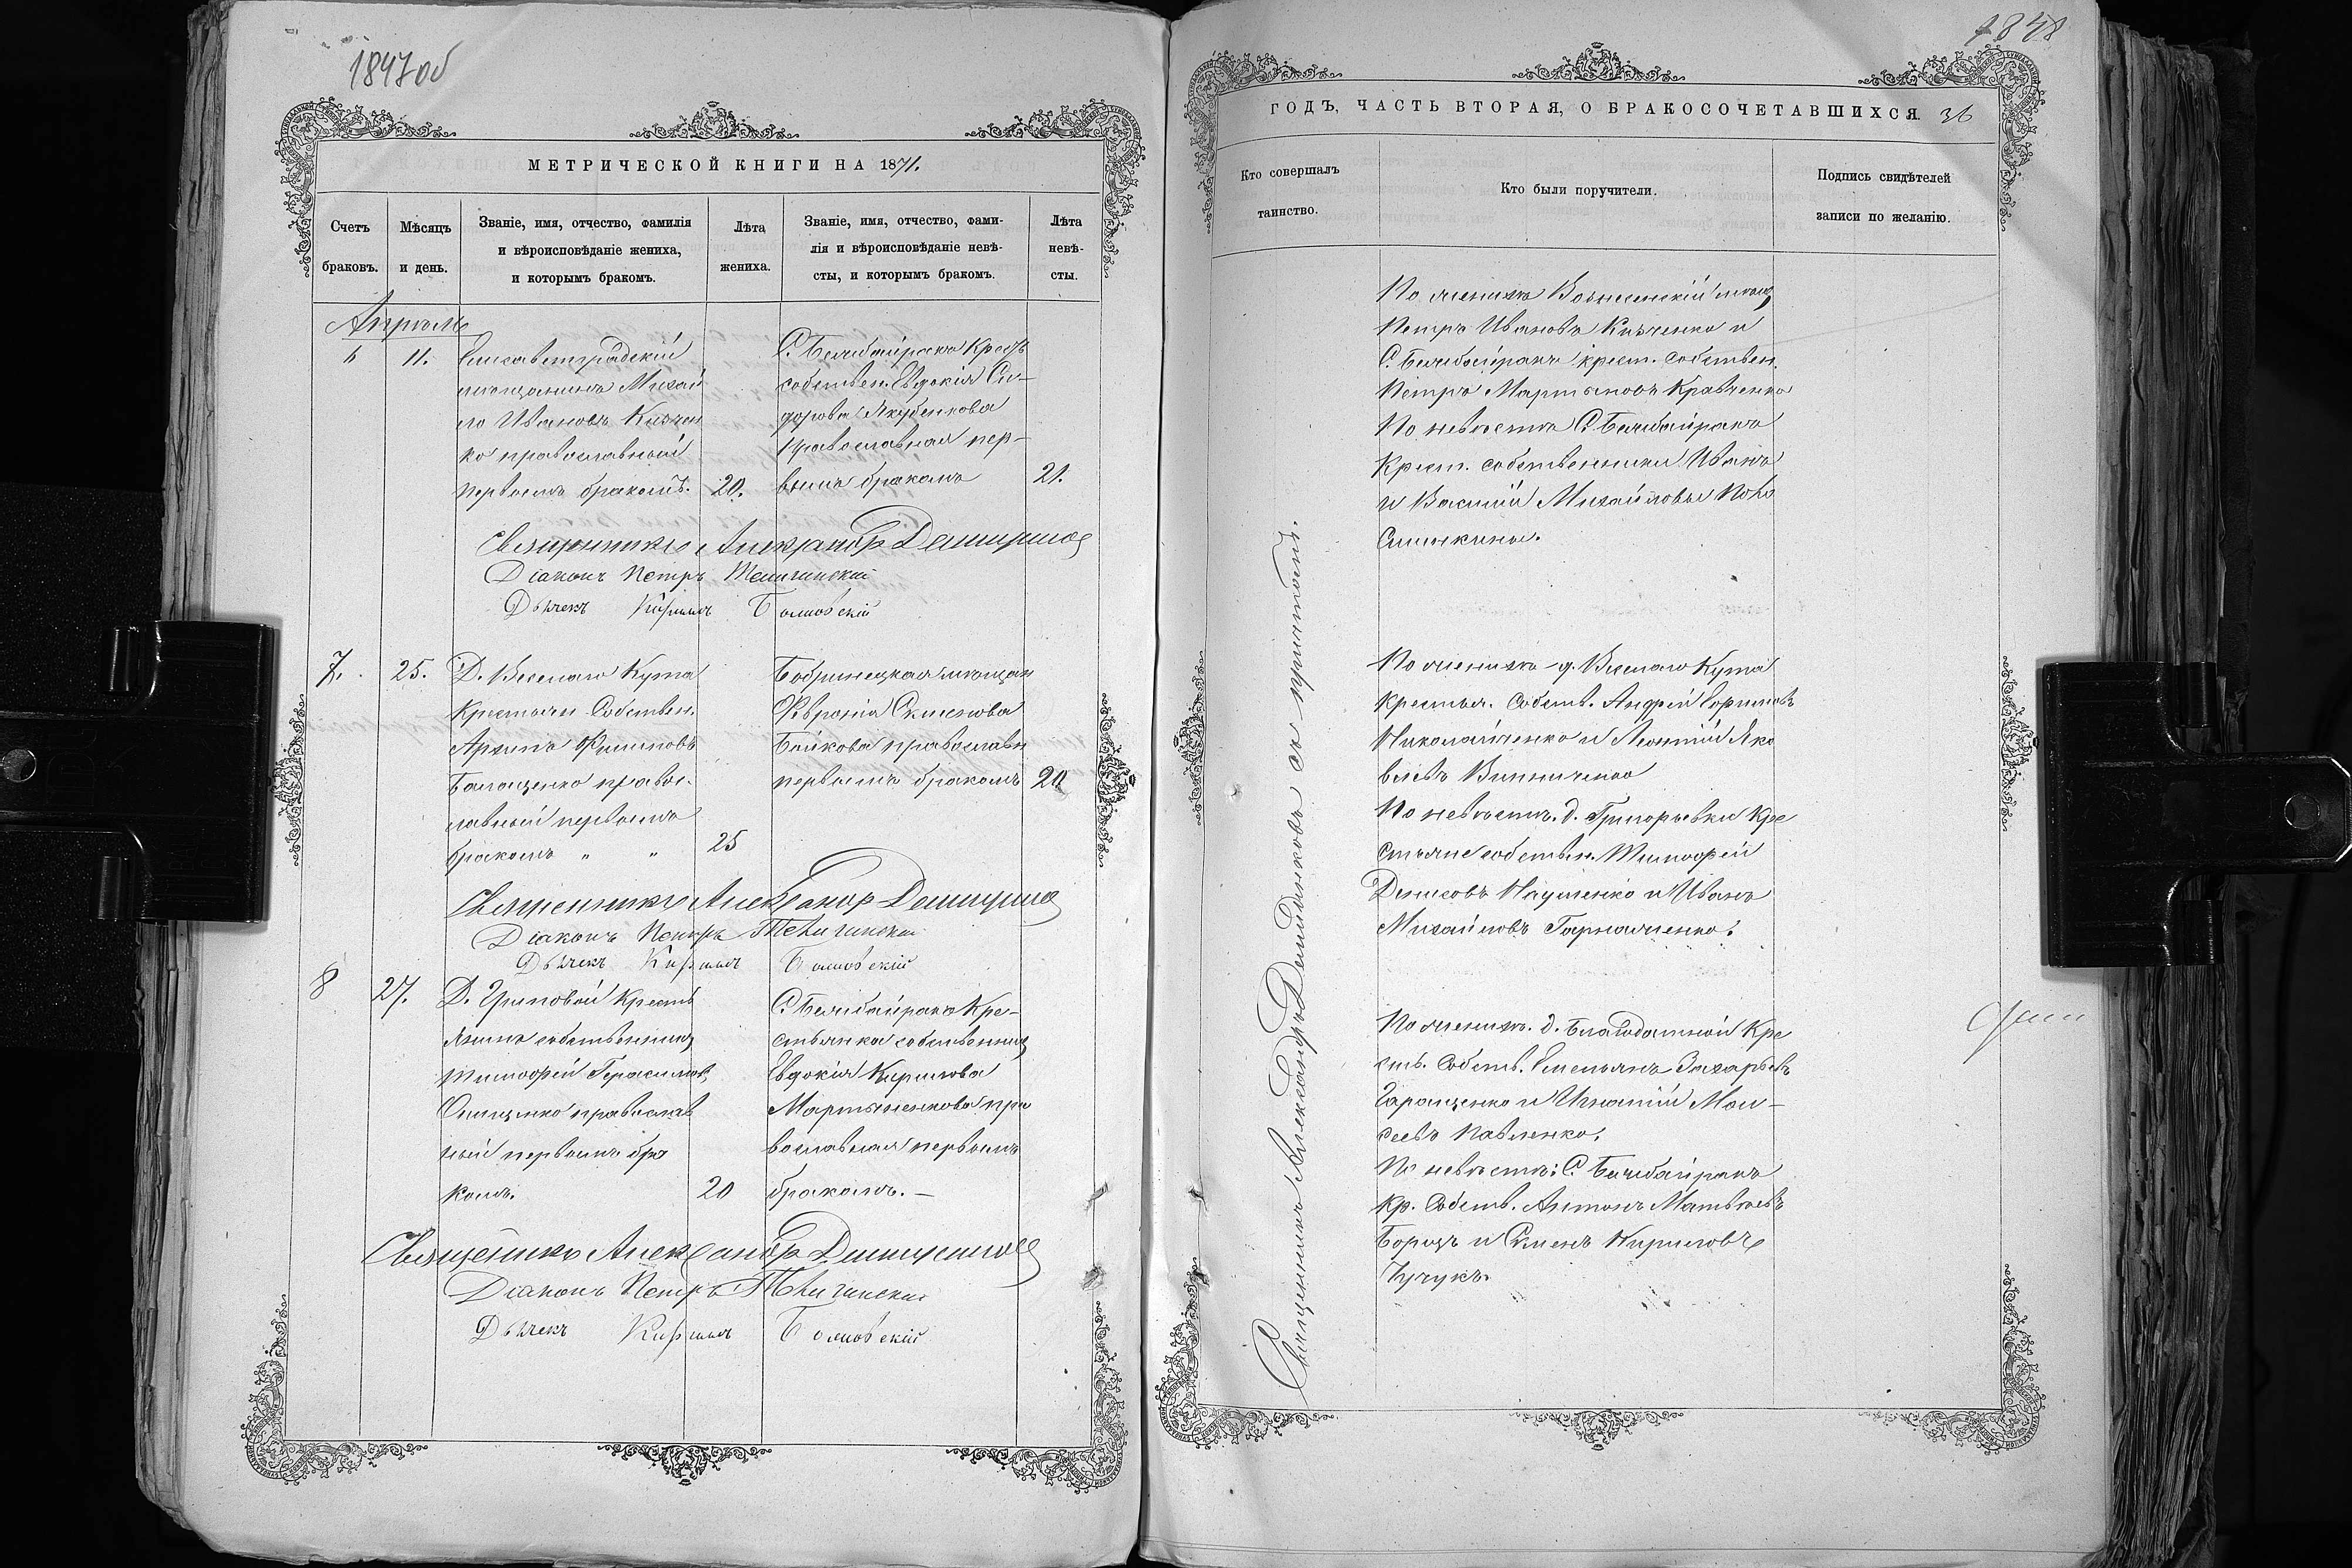 1847об
МЕТРИЧЕСКОЙ КНИГИ НА 1871.
Счетъ браковъ.
Мѣсяцъ и день.
Званіе, имя, отчество, фамилія
и вѣроисповѣданіе жениха,
и которымъ бракомъ.
Лѣта жениха.
Званіе, имя, отчество, фами-
лія и вѣроисповѣданіе невѣ-
сты, и которымъ бракомъ.
Лѣта невѣ-
сты.
Апрѣль
6 11. Елисаветградскій
мѣщанинъ Михаи
ло Ивановъ Кизчен
ко православный
первымъ бракомъ. 20.
С. Бешбайракъ Крест
собствен. Евдокія Си-
дорова Якубенкова
православная пер-
вымъ бракомъ 21.
Священникъ Александр
Діаконъ Петръ
Дьячекъ Кирилъ
7. 25. Д. Веселаго Кута
Крестьян Собствен.
Архипъ Филиповъ
Балащенко правос-
лавный первымъ
бракомъ " " 25
Бобринецкая мѣщан
Февронія Семенова
Бойкова православн
первымъ бракомъ 20
Священникъ Александр
Діаконъ Петръ
Дьячекъ Кирилъ
8 27. Д. Кресть
янинъ собственник
Тимофей Герасимов
Онищенко православ
ный первымъ бра
комъ. 20
С. Бешбайракъ Кре-
стьянка собственниц
Евдокія Кирилова
Мартыненкова пра
вославная первымъ
бракомъ. —
Священникъ Александр
Діаконъ Петръ
Дьячекъ Кирилъ
1848
ГОДЪ, ЧАСТЬ ВТОРАЯ, О БРАКОСОЧЕТАВШИХСЯ. 36
Кто совершалъ
таинство.
Кто были поручители.
Подпись свидѣтелей
записи по желанію.
Священникъ Александръ съ причтомъ.
По женихѣ Вознесенскій мѣщ
Петръ Ивановъ Кизченко и
С. Бешбайракъ крест. собствен.
Петръ Мартыновъ Кравченко
По невѣстѣ С. Бешбайракъ
Крест. собственники Иванъ
и Василій Михайловы
По женихѣ д. Веселаго Кута
крестьян. Собств. Андрей
Николайченко и Леонтій Яко
влевъ Винниченко
По невѣстѣ. д. Григорьевки Кре
стьяне собствен. Тимофей
Денисовъ и Иванъ
Михайловъ
По женихѣ. д. Благодатной Кре
сть. Собств. Емельянъ Захарьевъ
Геращенко и Игнатій Мои-
сеевъ Павленко.
По невѣстѣ: С. Бешбайракъ
Кр. Собств. Антонъ Матвѣевъ
Борщъ и Семенъ Кириловъ